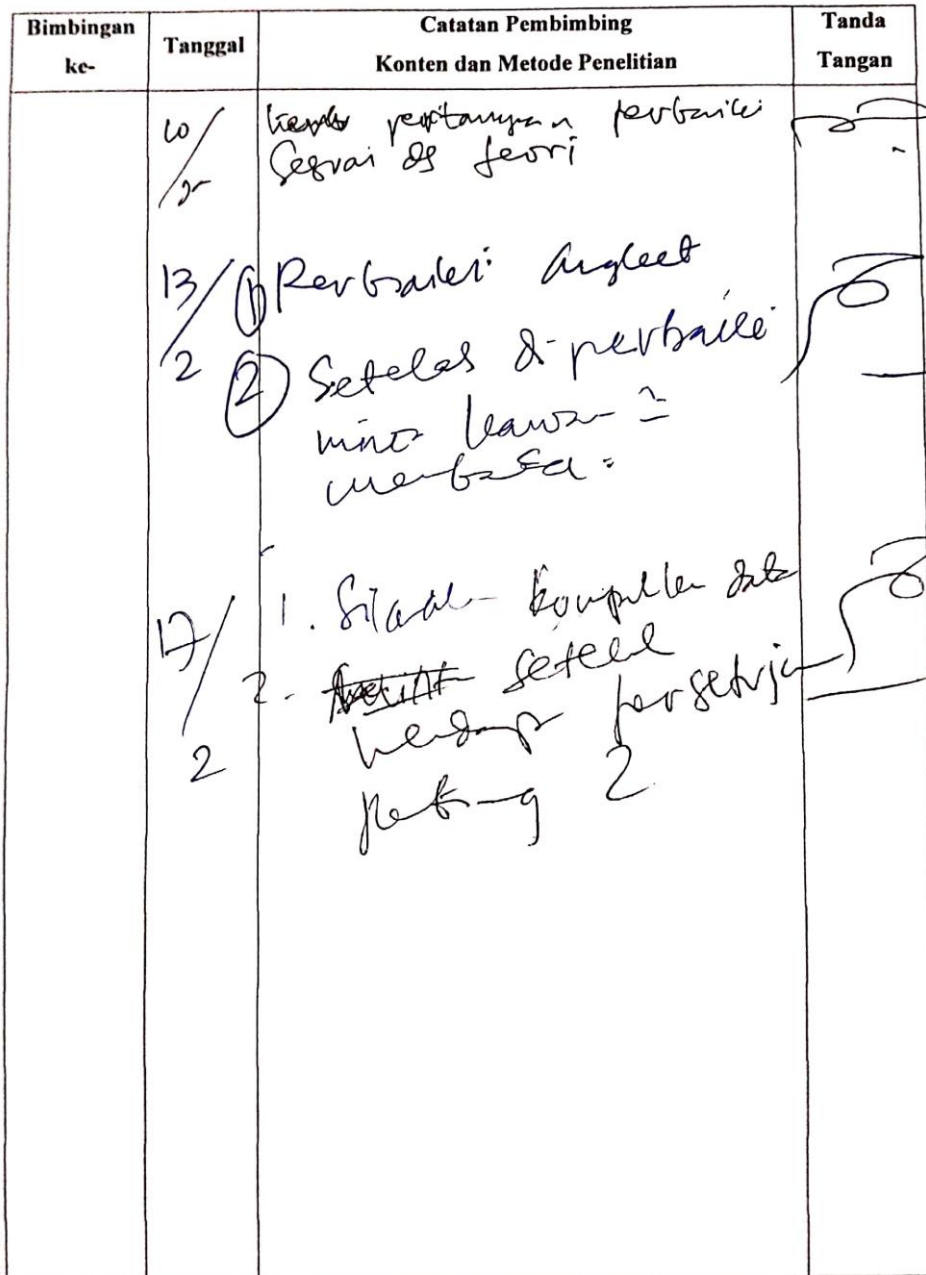 Bimbingan
ke-
Tanggal
Catatan Pembimbing
Konten dan Metode Penelitian
Tanda
Tangan
10/
pertanyaan perbaiki
Sesuai dg teori
13/2
① Perbaiki angket
② Setelah diperbaiki
minta kawan2
membaca.
17/2
1. Silakan kumpulkan data
2. setelah
mendapat persetujuan
pembimbing 2